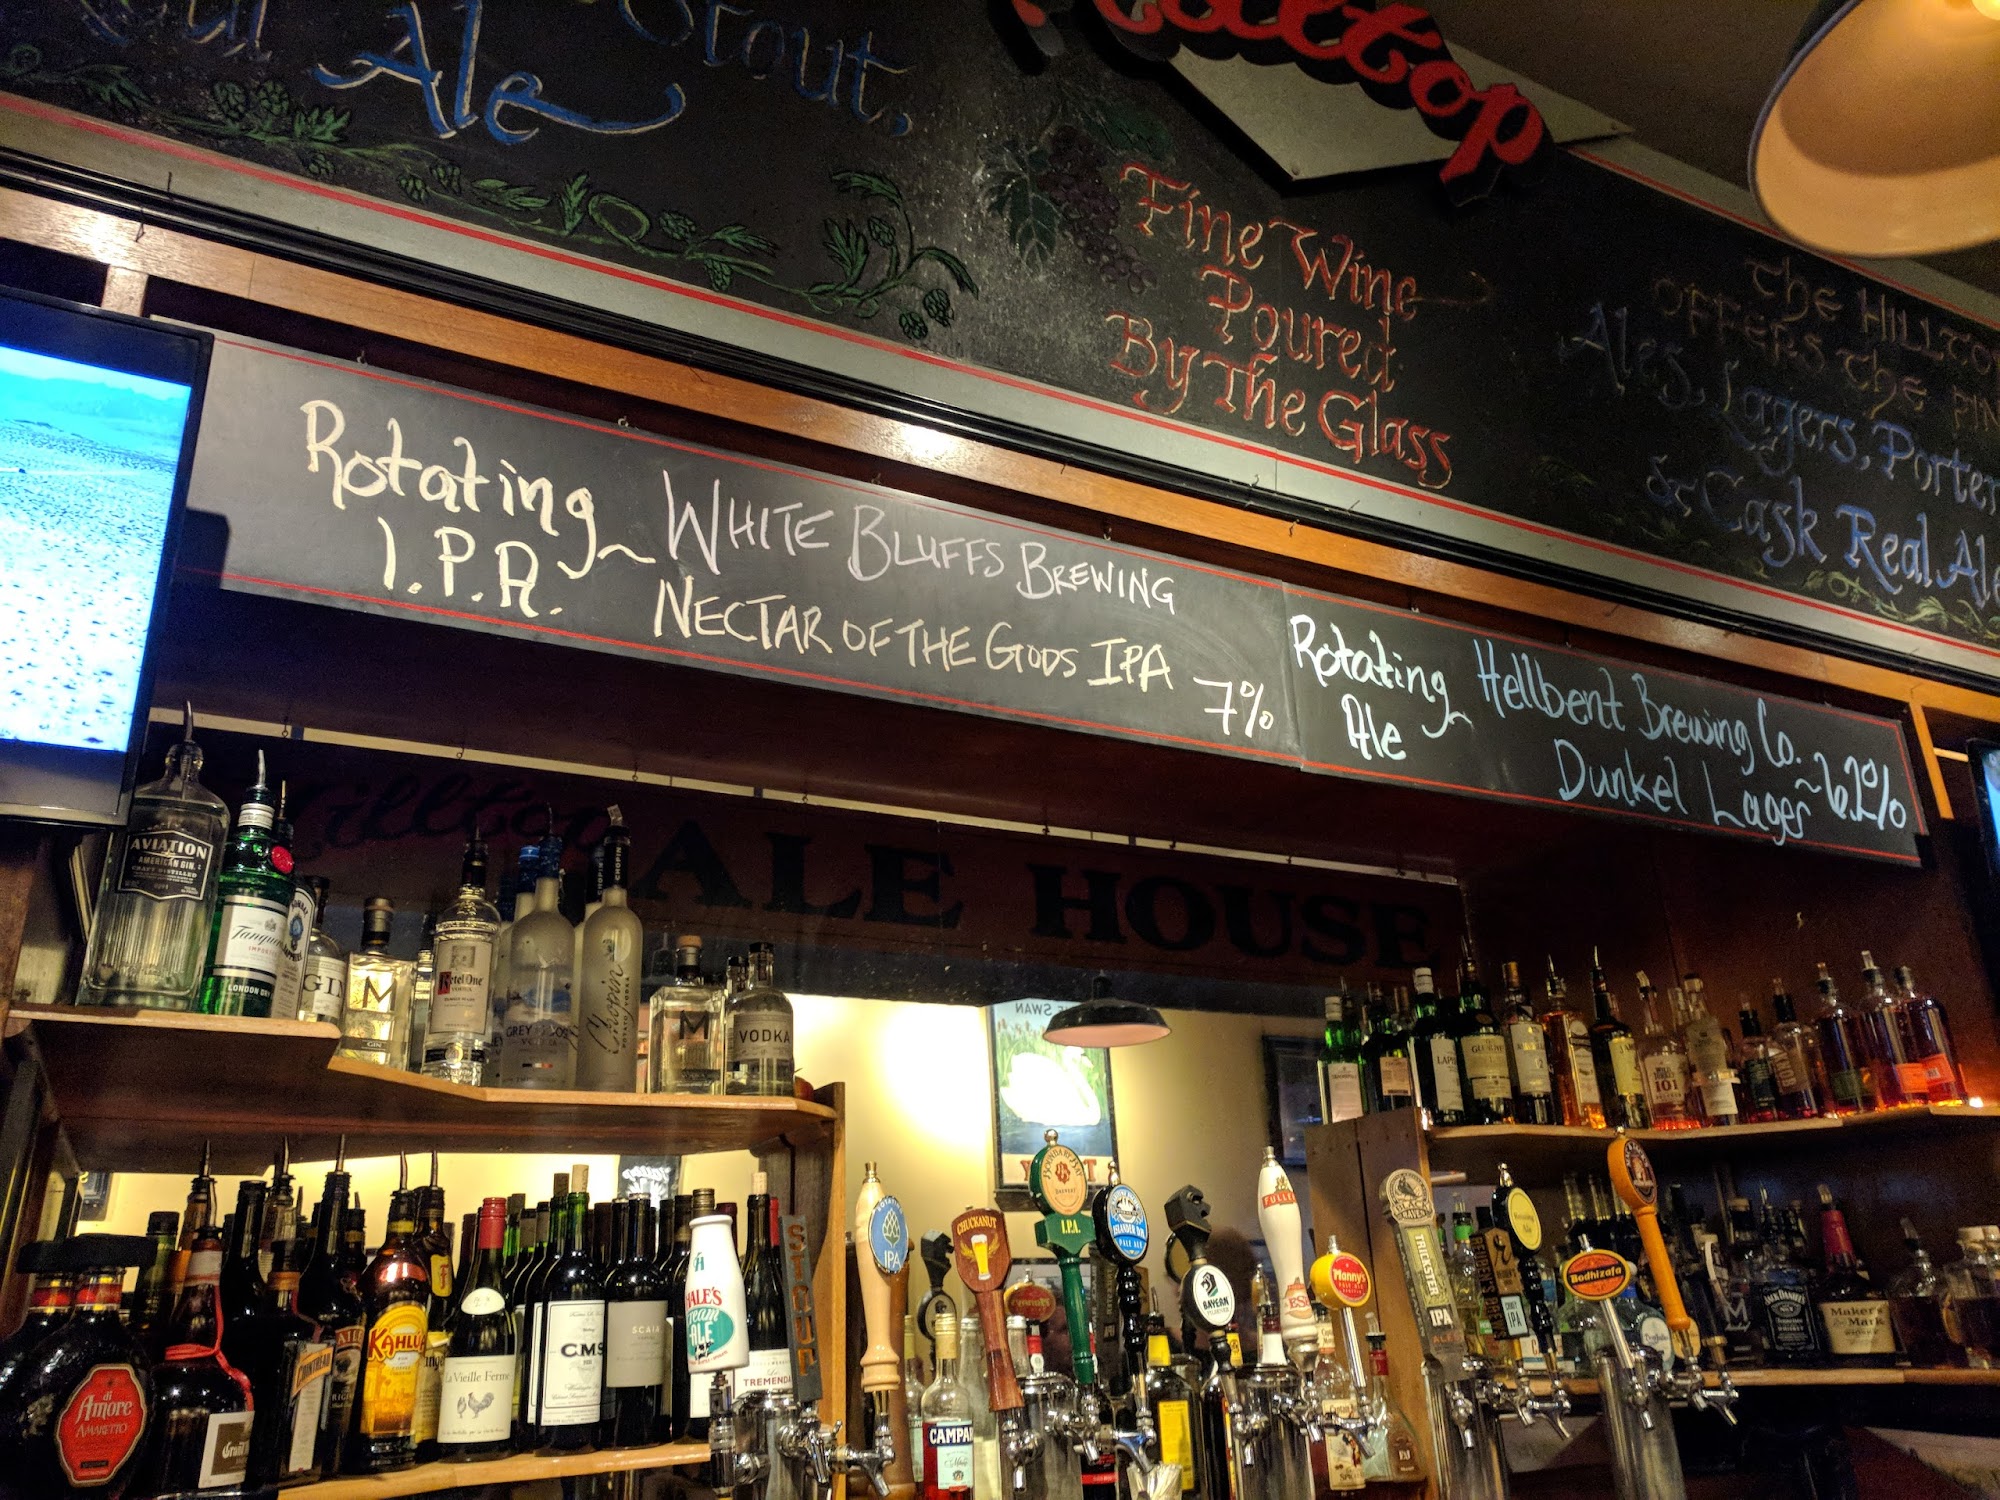 Ale
Stout,
Hilltop
Fine Wine
Poured
By The Glass
The HILLTO
OFFERS the FIN
Ales, Lagers, Porter
& Cask Real Ale
Rotating ~
I.P.A.
WHITE BLUFFS BREWING
NECTAR OF THE GODS IPA
7%
Rotating ~
Ale
Hellbent Brewing Co.
Dunkel Lager ~ 6.2%
Hilltop
ALE HOUSE
AVIATION
AMERICAN GIN
Tanqueray
LONDON DRY
GIN
M
GIN
Ketel One
GREY GOOSE
VODKA
Chopin
CHOPIN
M
VODKA
SWAN
101
di
Amore
AMARETTO
COINTREAU
KAHLUA
La Vieille Ferme
CMS
SCAIA
HALE'S
Cream
ALE
TREMENDUS
STOUT
IPA
CHUCKANUT
CAMPARI
I.P.A.
ISLANDER
PALE ALE
BAYERN
FULLER'S
ESB
Manny's
PALE ALE
BLACK
RAVEN
TRICKSTER
IPA
IPA
Ale
Bodhizafa
JACK DANIEL'S
Maker's
Mark